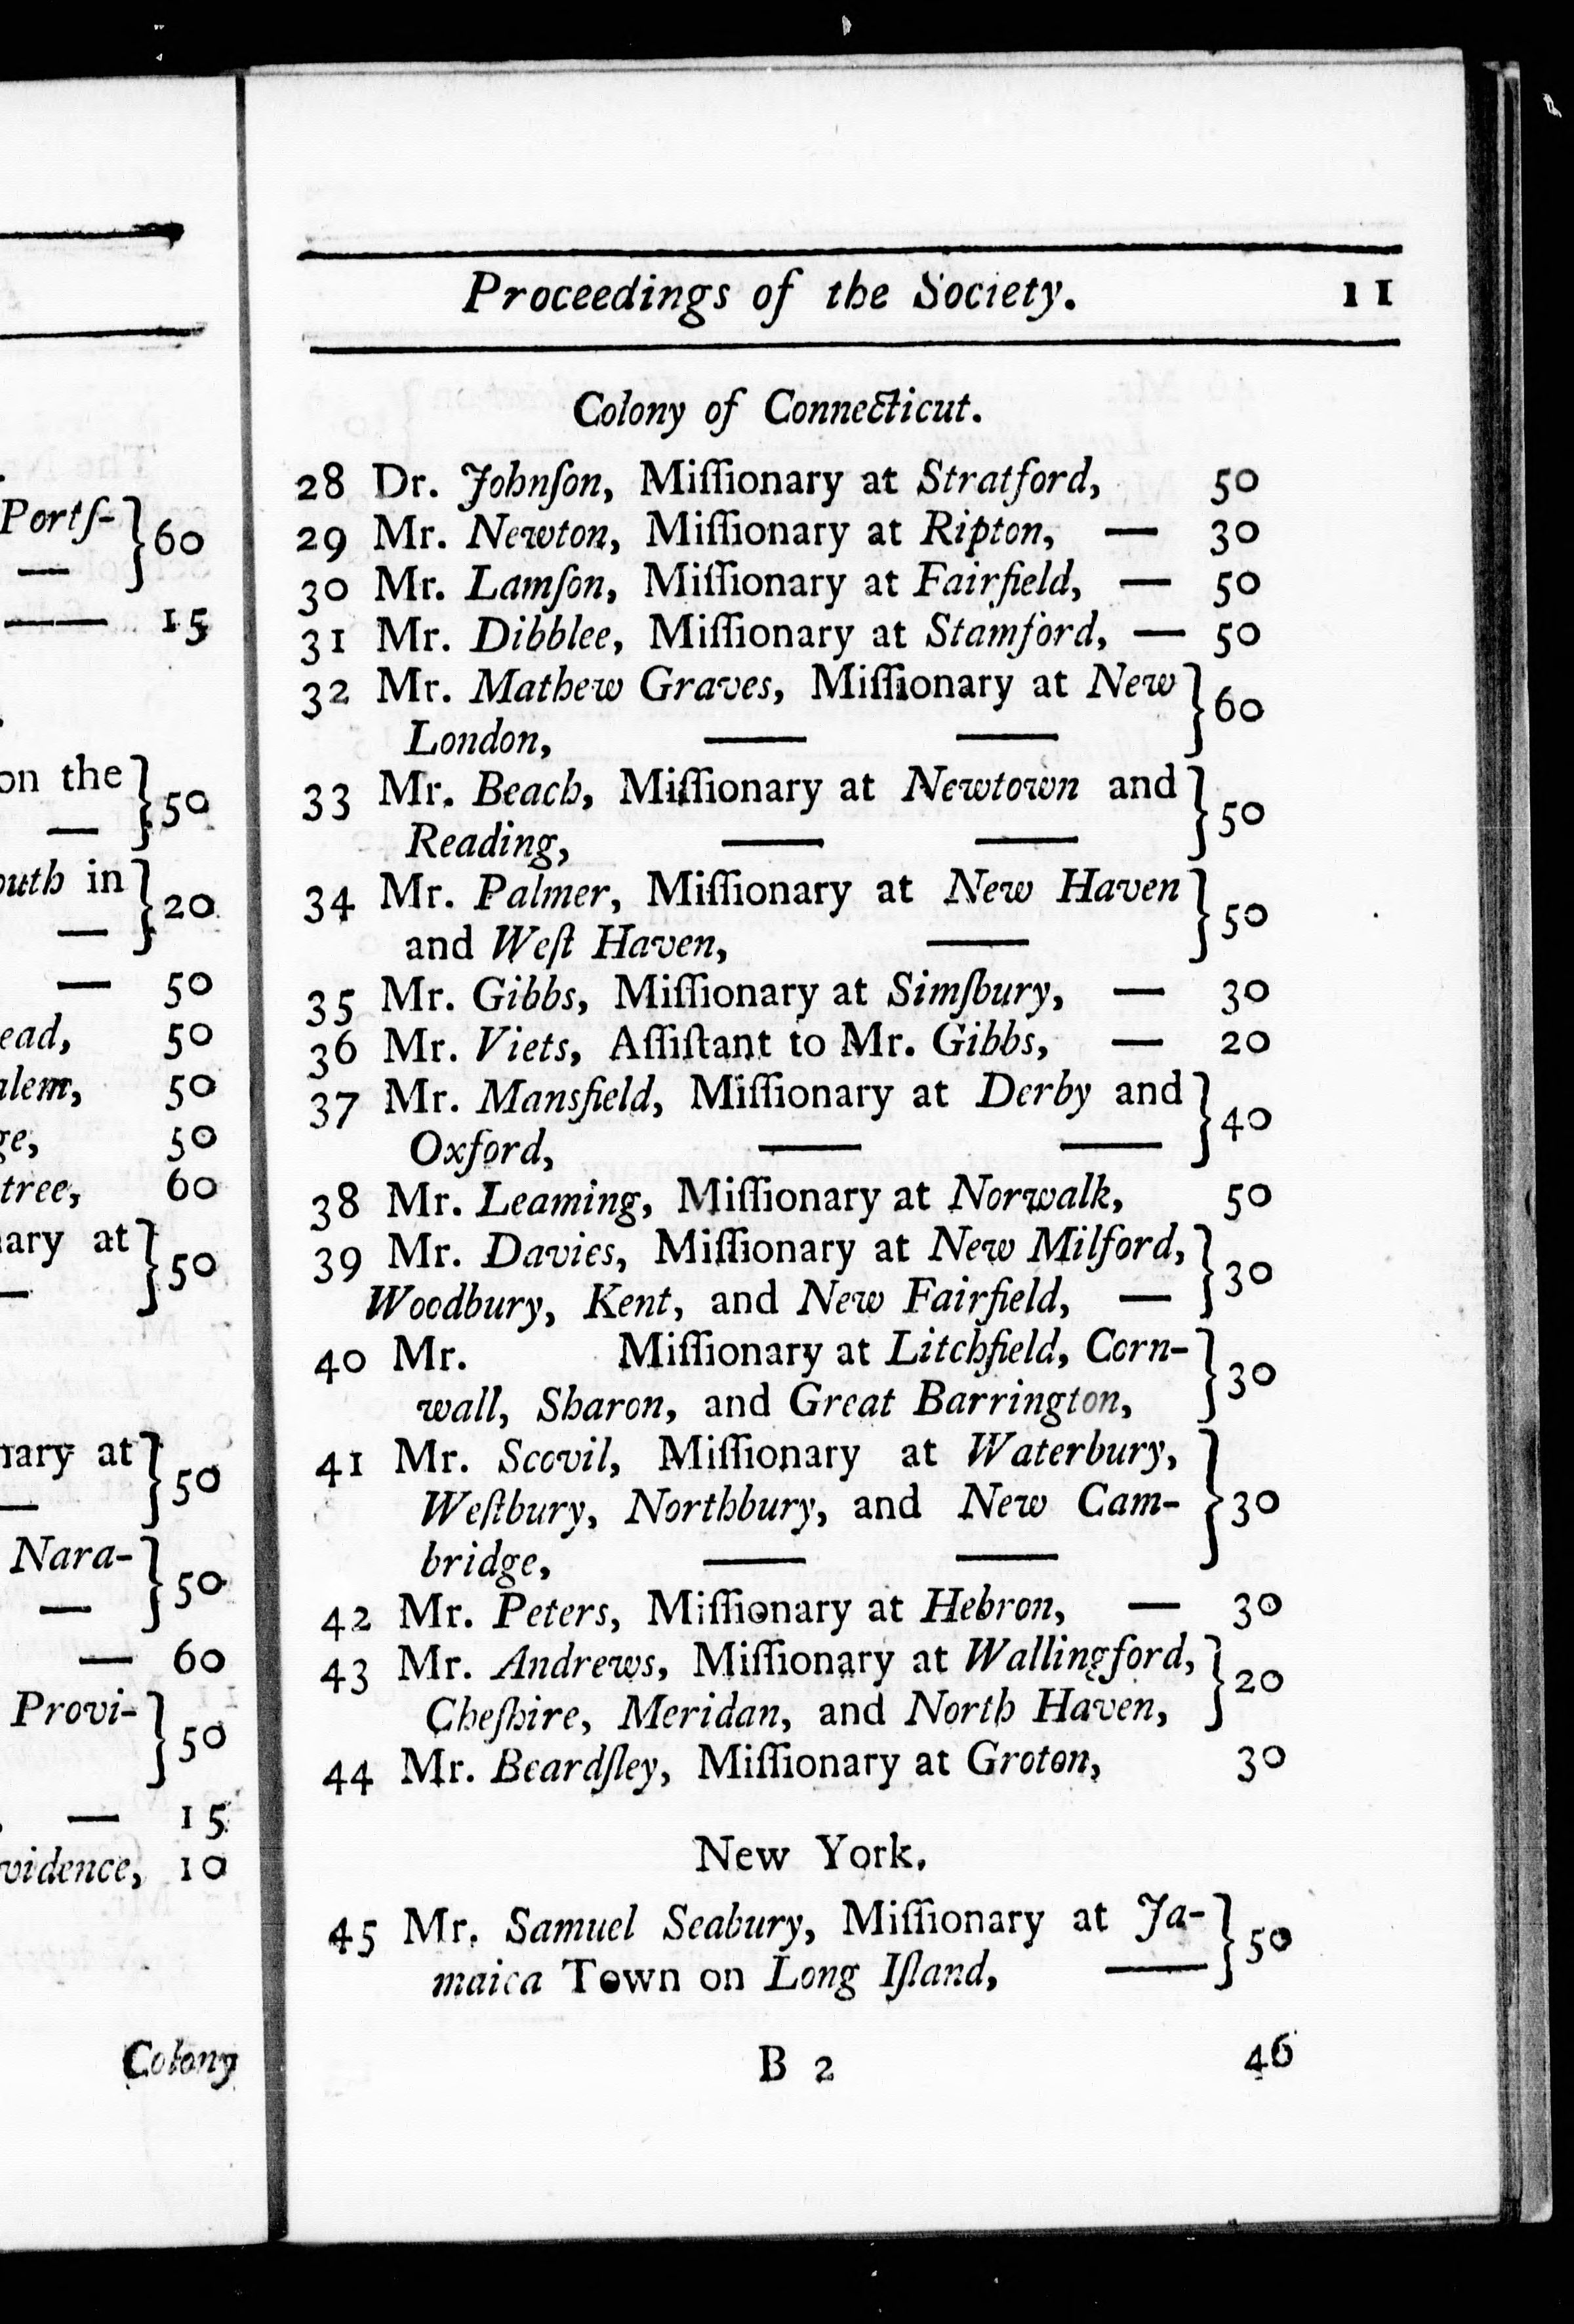 Ports-
60
—
—— 15
on the
50
—
outh in
20
—
— 50
ead, 50
alem, 50
ge, 50
tree, 60
ary at
50
—
nary at
50
—
Nara-
50
—
— 60
Provi-
50
— 15
vidence, 10
Colony
Proceedings of the Society. 11
Colony of Connecticut.
28 Dr. Johnſon, Miſſionary at Stratford, 50
29 Mr. Newton, Miſſionary at Ripton, — 30
30 Mr. Lamſon, Miſſionary at Fairfield, — 50
31 Mr. Dibblee, Miſſionary at Stamford, — 50
32 Mr. Mathew Graves, Miſſionary at New
London, — — } 60
33 Mr. Beach, Miſſionary at Newtown and
Reading, — — } 50
34 Mr. Palmer, Miſſionary at New Haven
and Weſt Haven, — } 50
35 Mr. Gibbs, Miſſionary at Simſbury, — 30
36 Mr. Viets, Aſſiſtant to Mr. Gibbs, — 20
37 Mr. Mansfield, Miſſionary at Derby and
Oxford, — — } 40
38 Mr. Leaming, Miſſionary at Norwalk, 50
39 Mr. Davies, Miſſionary at New Milford,
Woodbury, Kent, and New Fairfield, — } 30
40 Mr. Miſſionary at Litchfield, Corn-
wall, Sharon, and Great Barrington, } 30
41 Mr. Scovil, Miſſionary at Waterbury,
Weſtbury, Northbury, and New Cam- } 30
bridge, — —
42 Mr. Peters, Miſſionary at Hebron, — 30
43 Mr. Andrews, Miſſionary at Wallingford,
Cheſhire, Meridan, and North Haven, } 20
44 Mr. Beardſley, Miſſionary at Groton, 30
New York.
45 Mr. Samuel Seabury, Miſſionary at Ja-
maica Town on Long Iſland, — } 50
B 2 46